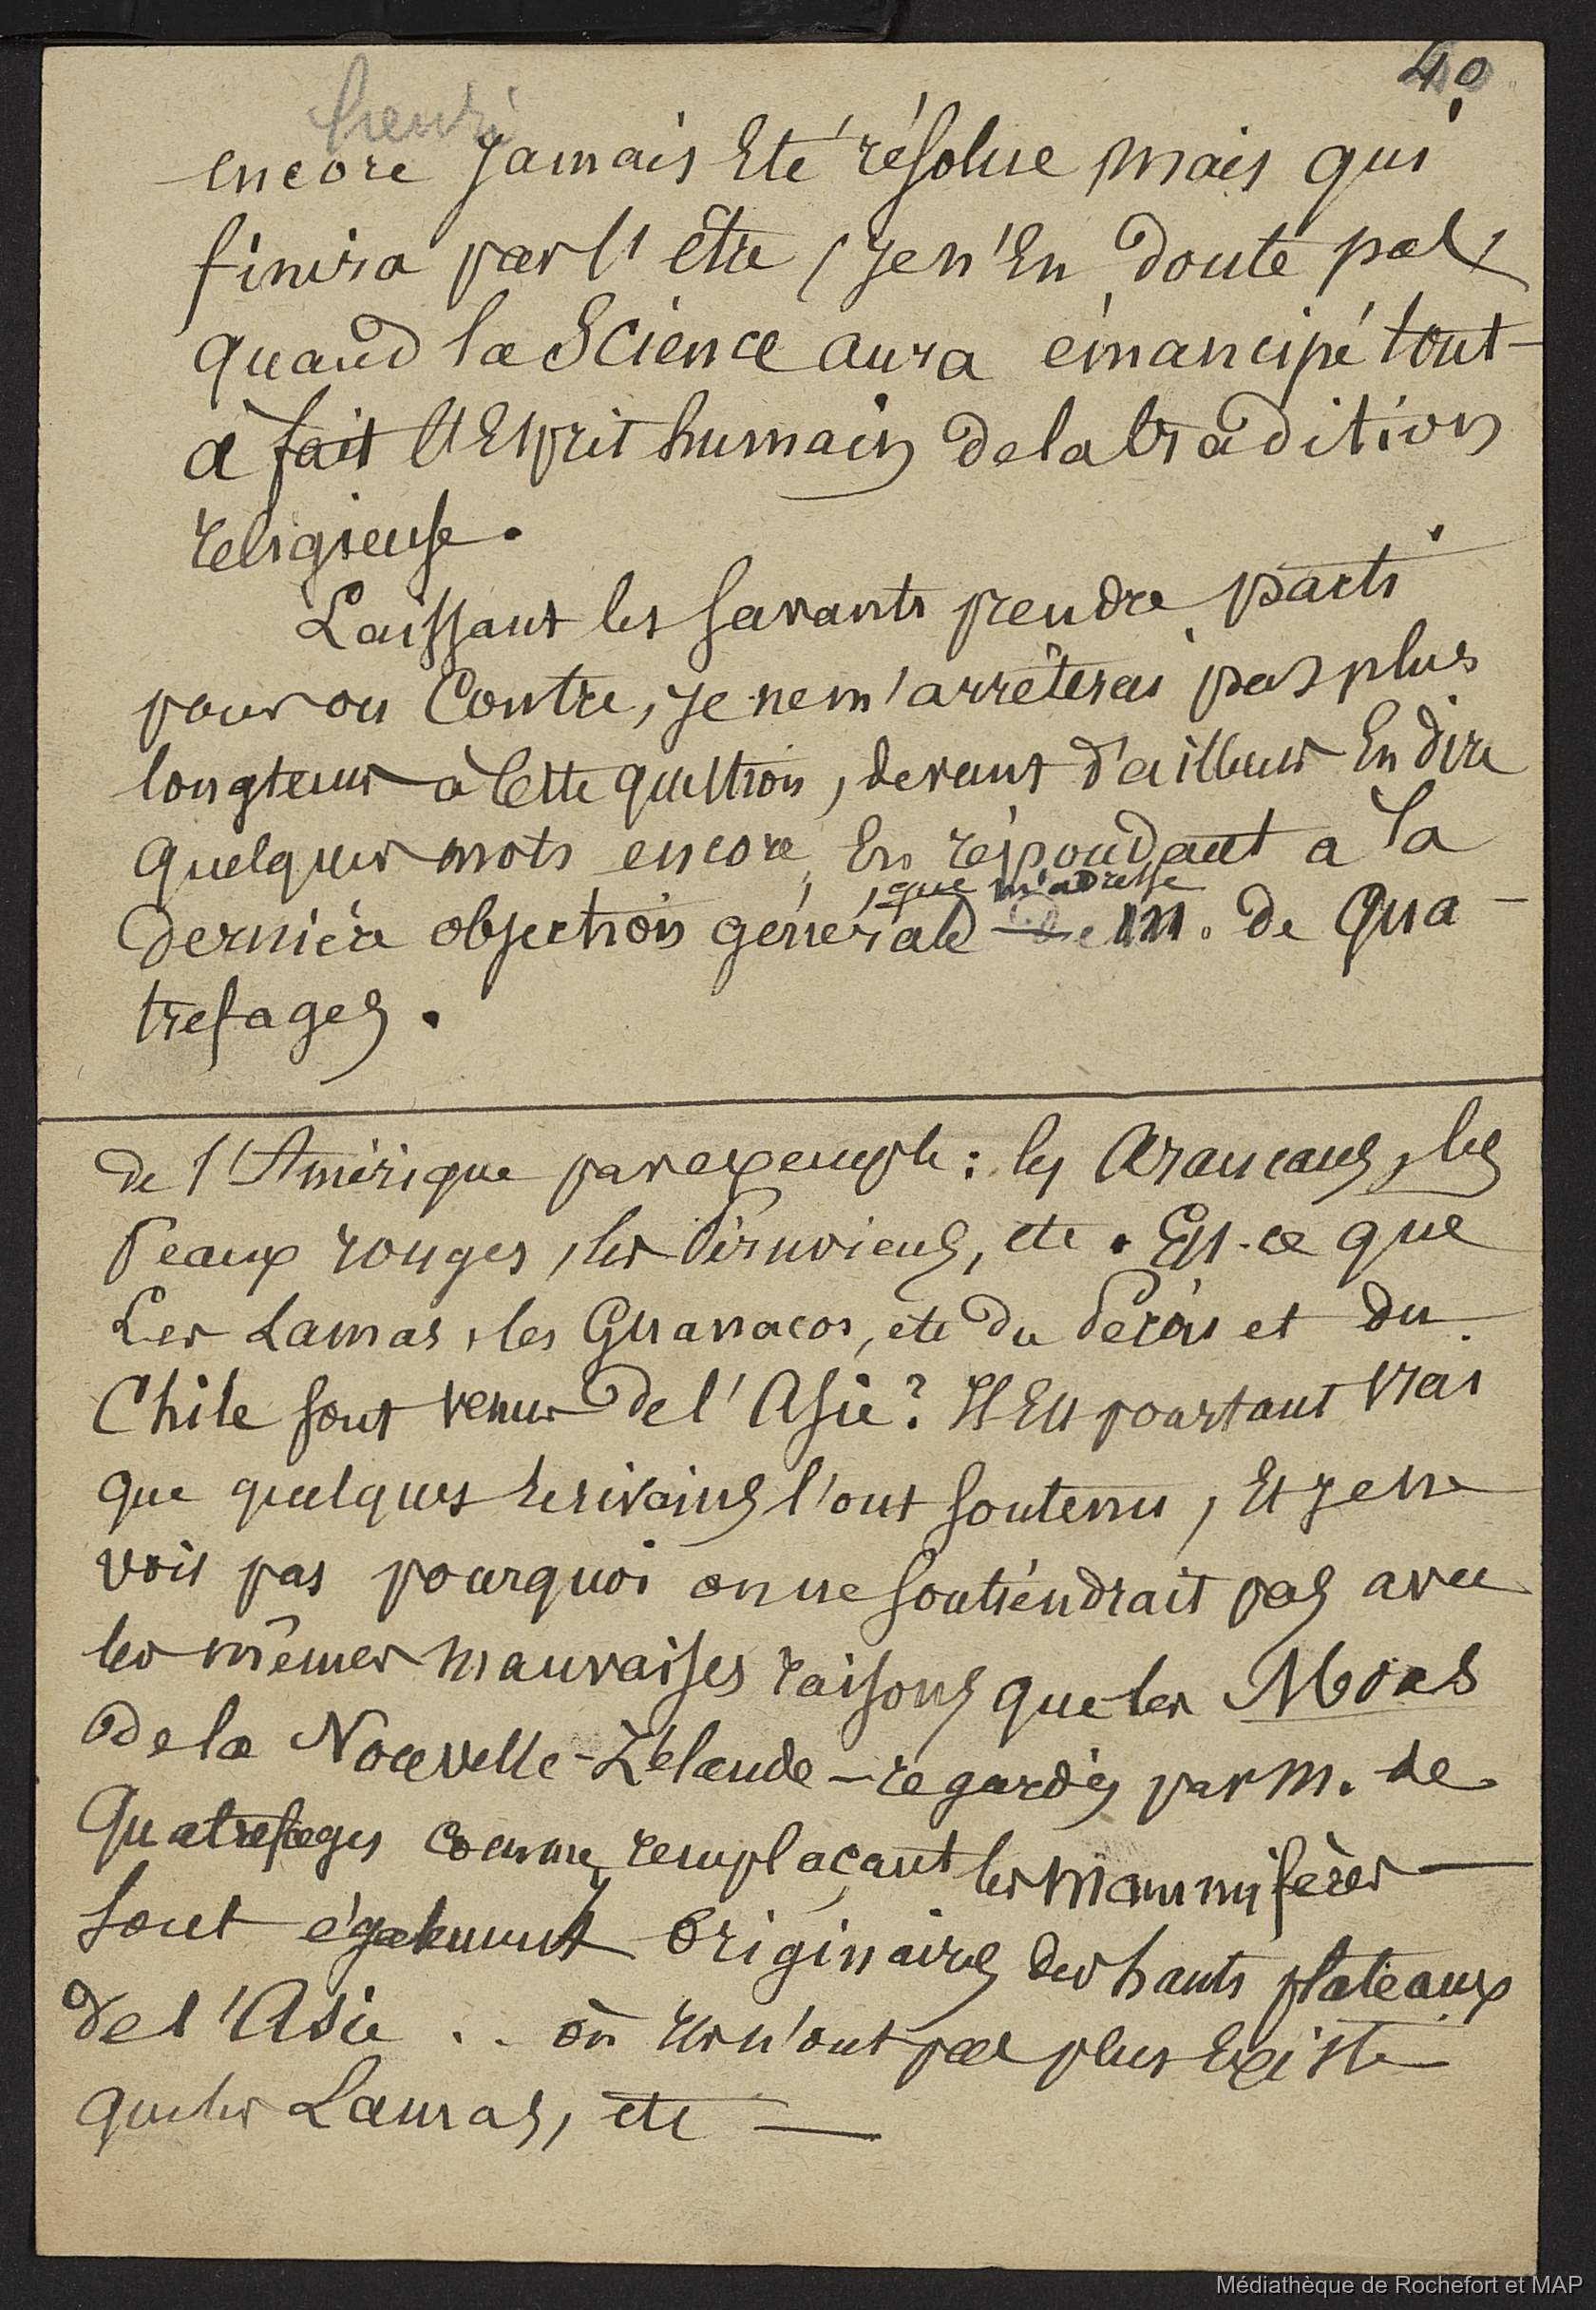 40
henri
encore jamais été résolue mais qui
finira par l'être (je n'en doute pas)
quand la Science aura émancipé tout-
à fait l'esprit humain de la tradition
religieuse.
Laissant les savants prendre parti
pour ou contre, je ne m'arrêterai pas plus
longtems à cette question, devant d'ailleurs en dire
quelques mots encore, en répondant a la
que m'adresse
dernière objection générale de M. de Qua-
trefages.
de l'Amérique par exemple : les Araucans, les
Peaux rouges, les Péruviens, etc. Est-ce que
Les Lamas, les Guanacos, etc du Pérou et du
Chile sont venus de l'Asie? Il est pourtant vrai
que quelques écrivains l'ont soutenu, et je ne
vois pas pourquoi on ne soutiendrait pas avec
les mêmes mauvaises raisons que les Moas
de la Nouvelle-Zélande — regardés par M. de
Quatrefages comme remplaçant les mammifères —
sont également originaires des hauts plateaux
de l'Asie .. où ils n'ont pas plus existé
que les Lamas, etc —
Médiathèque de Rochefort et MAP